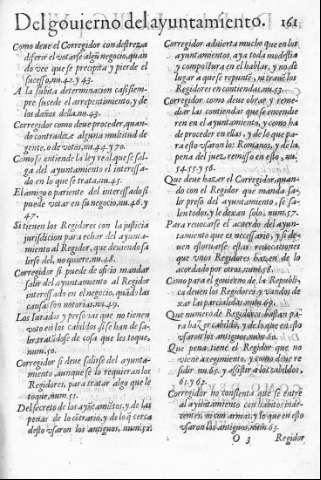 Del gouierno del ayuntamiento. 161
Como deue el Corregidor con destreza
diferir el votarse algū negocio, quan
do vee que se precipita y pierde el
sucesso, nu.42. y 43.
A la subita determinacion casi siem-
pre sucede el arrepentimiento, y de
los daños della. nu.43.
Corregidor como deue proceder, quan-
do contradize alguna multitud de
gente, o de votos, nu.44. y 70.
Como se entiende la ley real que se sal-
ga del ayuntamiento el interessa-
do en lo que se trata, nu.45.
El amigo o pariente del interessado si
puede votar en su negocio, nu.46. y
47.
Si tienen los Regidores con la justicia
jurisdicion para echar del ayunta-
miento al Regidor, que deuiendo sa
lirse del, no quiere, nu.48.
Corregidor si puede de oficio mandar
salir del ayuntamiento al Regidor
interessado en el negocio, quādo las
causas son notorias, nu.49.
Los Iurados y personas que no tienen
voto en los cabildos si se han de sa-
lir tratādose de cosa que les toque,
num.50.
Corregidor si deue salirse del ayunta-
miento, aunque se lo requieran los
Regidores, para tratar algo que le
toque, num.51.
Del secreto de los ayūtamiētos, y de las
penas de lo cōtrario, y de lo q̄ cerca
desto vsaron los antiguos, num.52.
Corregidor aduierta mucho que en los
ayuntamientos, aya toda modestia
y compostura en el hablar, y no de
lugar a que se repunte, ni trauē los
Regidores en contiendas, nu.53.
Corregidor como deue obiar y reme-
diar las contiendas que se encendie
ren en el ayuntamiento, y como ha
de proceder en ellas, y de lo que pa-
ra esto vsaron los Romanos, y de la
pena del juez remisso en esto, nu.
54.55. y 56.
Que deue hazer el Corregidor, quan-
do con el Regidor que manda sa-
lir preso del ayuntamiento, se sa-
len todos, y le dexan solo. num.57.
Para reuocarse el acuerdo del ayun-
tamiento que es necessario, y si de-
uen escusarse estas reuocaciones
que vnos Regidores hazen de lo
acordado por otros, num.58.
Como para el gouierno de la Republi-
ca deuen los Regidores
las parcialidades. num.59.
Que numero de Regidores bastan pa-
ra hazer cabildo, y de lo que en esto
vsaron los antiguos. num.60.
Que pena tiene el Regidor que no
viene a regimiento, y como deue re
sidir nu.61. y assistir a los cabildos.
61. y 62.
Corregidor no consienta que se entre
al ayuntamiento con habitos inde-
centes, ni con armas; y lo que en esto
vsaron los antiguos, num.63.
O 3 Regidor